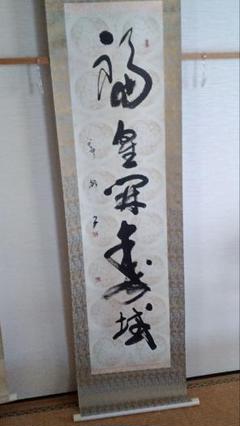 福星開壽域